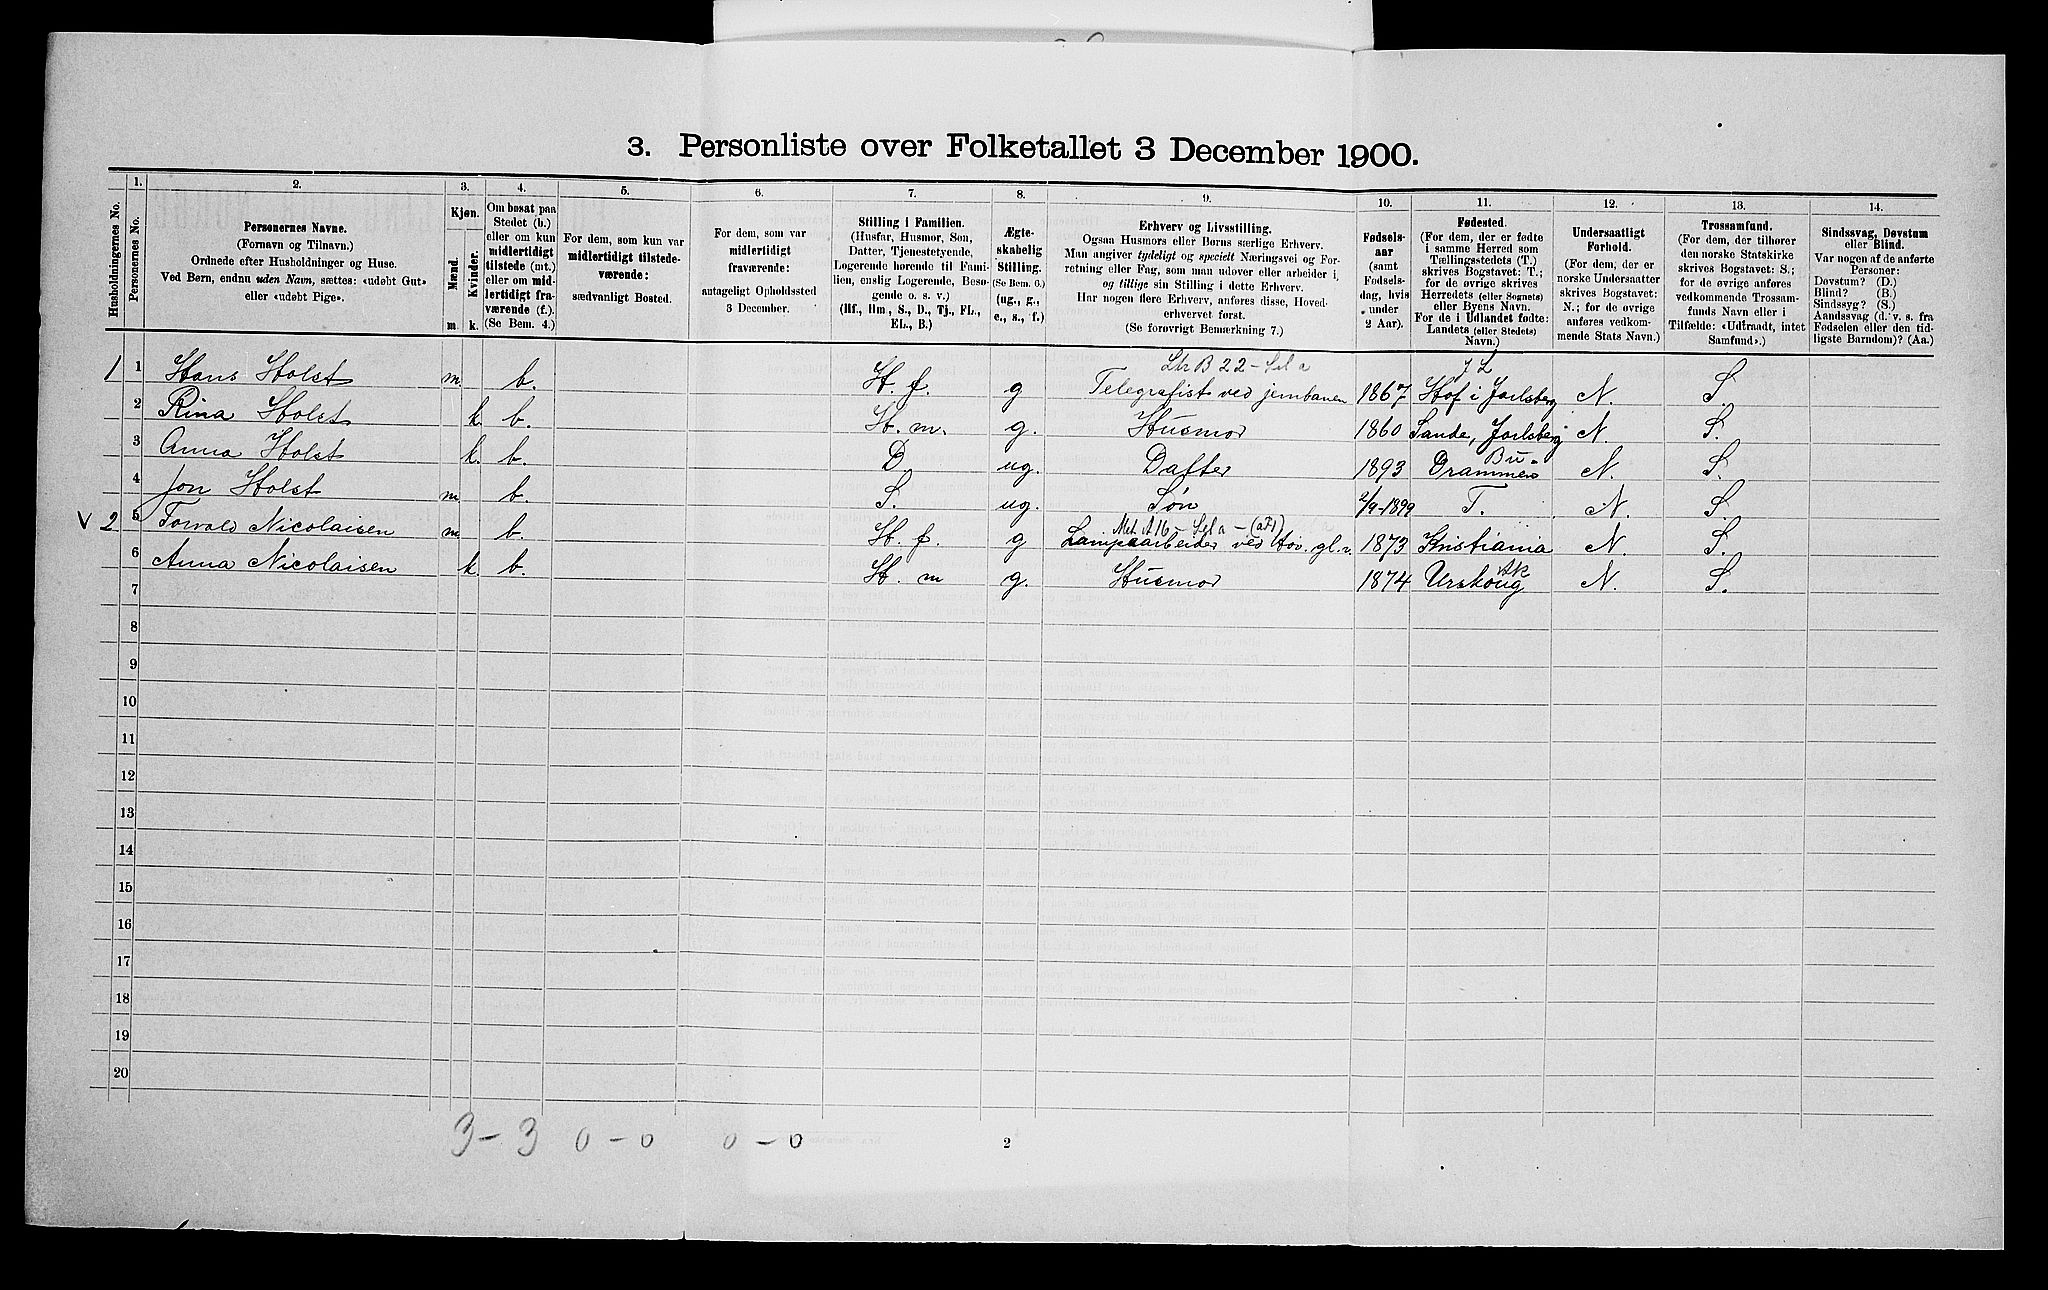 3. Personliste over Folketallet 3 December 1900.
Husholdningernes No.
1.
Personernes No.
2.
Personernes Navne.
(Fornavn og Tilnavn.)
Ordnede efter Husholdninger og Huse.
Ved Børn, endnu uden Navn, sættes: «udøbt Gut»
eller «udøbt Pige».
3.
Kjøn.
Mænd.
Kvinder.
m.
k.
4.
Om bosat paa
Stedet (b.)
eller om kun
midlertidigt
tilstede (mt.)
eller om mid-
lertidigt fra-
værende (f.).
(Se Bem. 4.)
5.
For dem, som kun var
midlertidigt tilstede-
værende:
sædvanligt Bosted.
6.
For dem, som var
midlertidigt
fraværende:
antageligt Opholdssted
3 December.
7.
Stilling i Familien.
(Husfar, Husmor, Søn,
Datter, Tjenestetyende,
Logerende hørende til Fami-
lien, enslig Logerende, Besø-
gende o. s. v.)
(Hf., Hm., S., D., Tj., FL.,
EL., B.)
8.
Ægte-
skabelig
Stilling.
(Se Bem. 6.)
(ug., g.,
e., s., f.)
9.
Erhverv og Livsstilling.
Ogsaa Husmors eller Børns særlige Erhverv.
Man angiver tydeligt og specielt Næringsvei og For-
retning eller Fag, som man udøver eller arbeider i,
og tillige sin Stilling i dette Erhverv.
Har nogen flere Erhverv, anføres disse, Hoved-
erhvervet først.
(Se forøvrigt Bemærkning 7.)
10.
Fødsels-
aar
(samt
Fødsels-
dag, hvis
under
2 Aar).
11.
Fødested.
(For dem, der er fødte
i samme Herred som
Tællingsstedets (T.)
skrives Bogstavet: T.;
for de øvrige skrives
Herredets (eller Sognets)
eller Byens Navn.
For de i Udlandet fødte:
Landets (eller Stedets)
Navn.)
12.
Undersaatligt
Forhold.
(For dem, der er
norske Undersaatter
skrives Bogstavet:
N.; for de øvrige
anføres vedkom-
mende Stats Navn.)
13.
Trossamfund.
(For dem, der tilhører
den norske Statskirke
skrives Bogstavet: S.;
for de øvrige anføres
vedkommende Trossam-
funds Navn eller i
Tilfælde: «Udtraadt, intet
Samfund».)
14.
Sindssvag, Døvstum
eller Blind.
Var nogen af de anførte
Personer:
Døvstum? (D.)
Blind? (B.)
Sindssyg? (S.)
Aandssvag (d. v. s. fra
Fødselen eller den tid-
ligste Barndom)? (Aa.)
Str B 22 - Sel a
J L
1 1 Hans Holst m. b. H. f. g Telegrafist ved jernbanen 1867 Hof i Jarlsberg N. S.
2 Rina Holst k. b. H. m. g. Husmor 1860 Sande, Jarlsberg N. S.
Bu
3 Anna Holst k. b. D. ug. Datter 1893 Drammen N. S.
4 Jon Holst m. b. S. ug. Søn 2/9-1899 T. N. S.
Met. A 16 - Sel a
V 2 5 Torvald Nicolaisen m. b. H. f. g Lampearbeider ved 1873 Kristiania N. S.
Ak
6 Anna Nicolaisen k. b. H. m g. Husmor 1874 Urskoug N. S.
7
8
9
10
11
12
13
14
15
16
17
18
19
20
3 - 3 0 - 0 0 - 0
2